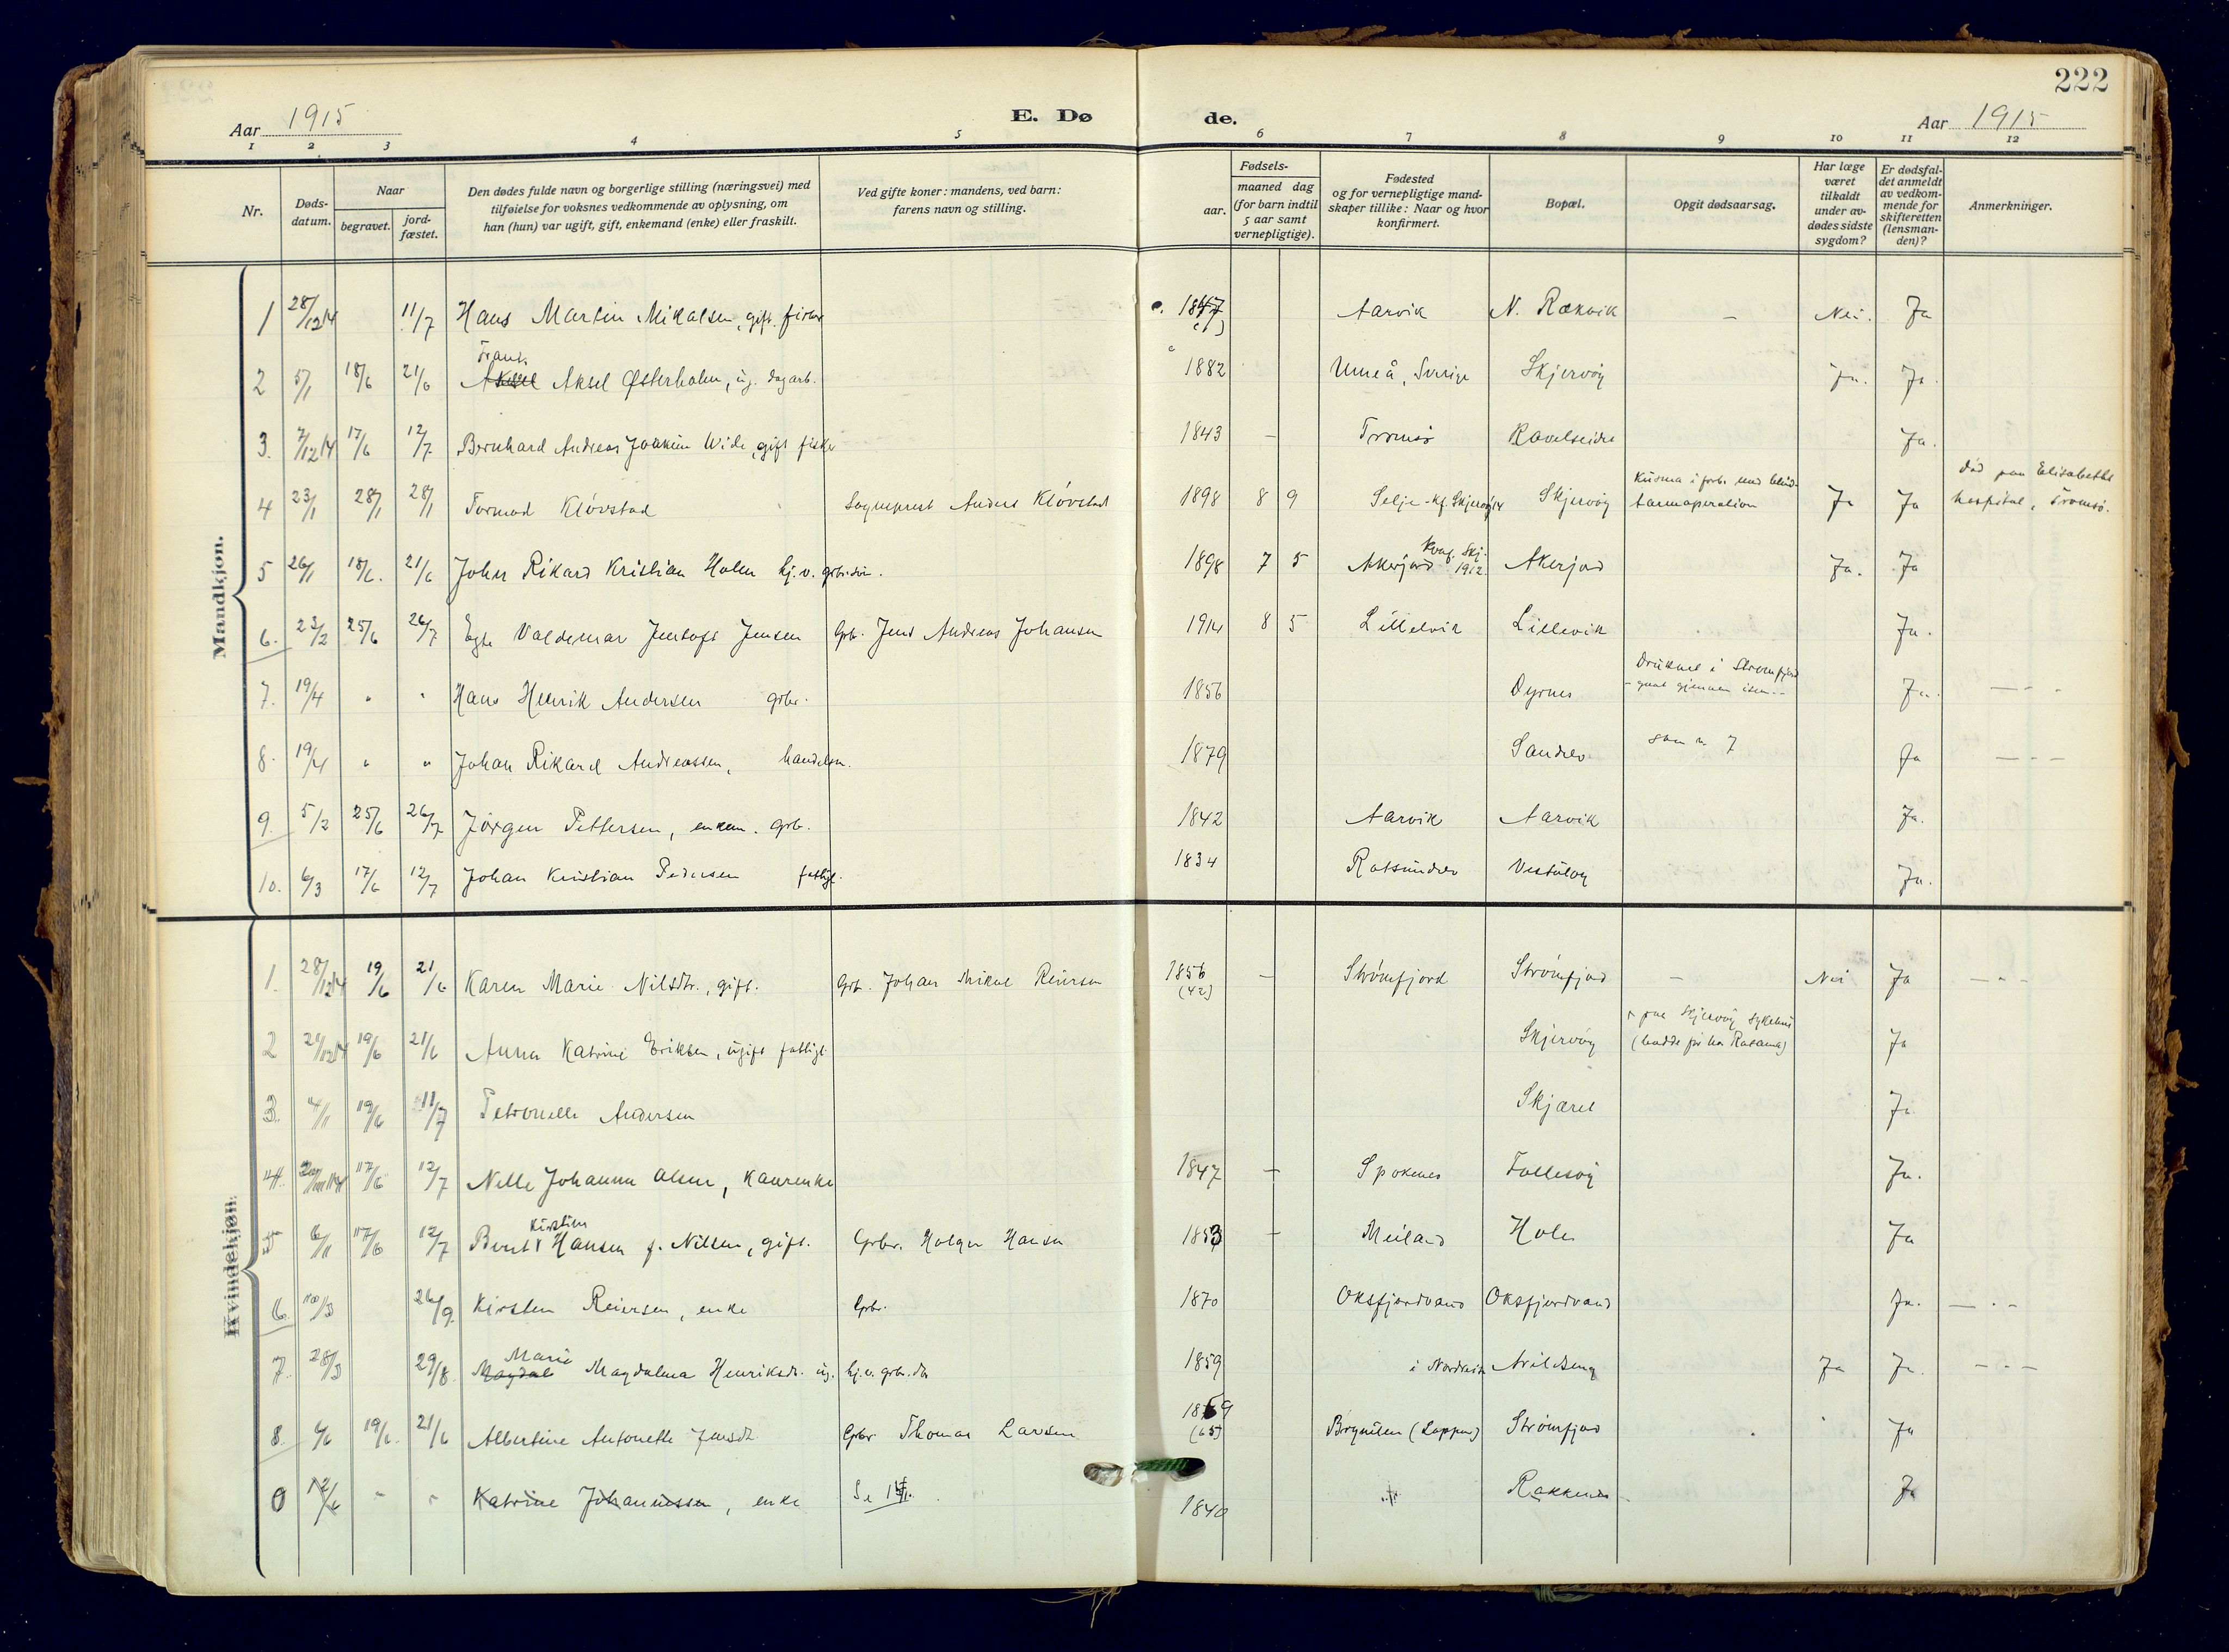 222
Aar 1915
E. Dø
de.
Aar 1915
1 2 3 4 5 6 7 8 9 10 11 12
Nr.
Døds-
datum.
Naar
begravet.
jord-
fæstet.
Den dødes fulde navn og borgerlige stilling (næringsvei) med
tilføielse for voksnes vedkommende av oplysning, om
han (hun) var ugift, gift, enkemand (enke) eller fraskilt.
Ved gifte koner: mandens, ved barn:
farens navn og stilling.
Fødsels-
aar.
maaned dag
(for barn indtil
5 aar samt
vernepligtige).
Fødested
og for vernepligtige mand-
skaper tillike: Naar og hvor
konfirmert.
Bopæl.
Opgit dødsaarsag.
Har læge
været
tilkaldt
under av-
dødes sidste
sygdom?
Er dødsfal-
det anmeldt
av vedkom-
mende for
skifteretten
(lensman-
den)?
Anmerkninger.
Mandkjøn.
1 28/12 14 11/7 Hans Martin Mikalsen, gift. Aarvik N. Rækvik – Nei. Ja
Frans
2 5/1 18/6 21/6 Aksel Østerholm, ug. dagarb. 1882 Umeå, Sverige Skjervøy Ja. Ja.
3. 7/12 14 17/6 12/7 Bernhard Andreas Joakim Wide, gift fisker 1843 – Tromsø Ravelseidet Ja.
4 23/1 28/1 28/1 Tormod Kløvstad Sogneprest Anders Kløvstad 1898 8 9 Selje - kf. Skjervøy 14 Skjervøy tarmoperation Ja Ja død paa Elisabeths
hospital, Tromsø.
5 26/1 18/6. 21/6 Johan Rikard Kristian Holen hj.v. grbr.søn. 1898 7 5 Akerjord Skj. 1912 Akerjord Ja. Ja
6. 23/2 25/6 26/7 Egte Valdemar Jentoft Jensen Grb. Jens Andreas Johansen 1914 8 5 Lillevik Lillevik Ja.
7. 19/4 " " Hans Henrik Andersen grbr. 1856 Dyrnes Druknet i Strømfjord
- gjennem isen.- Ja. – - -
8. 19/4 " " Johan Rikard Andreassen, handelsm. 1879 Sandlev som n. 7 Ja – - –
9. 5/2 25/6 26/7 Jørgen Pettersen, enkem. Grb. 1842 Aarvik Aarvik Ja.
10. 6/3 17/6 12/7 Johan Kristian Pedersen fattigl. 1834 Rotsundelv Ja.
Kvindekjøn.
1. 28/12 14 19/6 21/6 Karen Marie Nilsdtr., gift. Grb. Johan Mikal Reiersen 1856 – Strømfjord Strømfjord – Nei Ja – - -
(42)
2 19/6 21/6 Anna Katrine Eriksen, ugift fattigl. Skjervøy paa Skjervøy sykehus Ja
3. 4/1 19/6 11/7 Petronelle Andersen Skjæret Ja
4. 17/6 12/7 Nelle Johanna Olsen, kaarenke 1847 – Spokenes Follesøy Ja.
Kirstine
5 6/1 17/6 12/7 Berit Hansen f. Nilsen, gift. Grbr. Holger Hansen 1853 – Meiland Holen Ja
6. 10/3 26/9 Kirsten Reiersen, enke Grbr. 1870 Oksfjordvand Oksfjordvand Ja. – - -
Marie
7. 28/3 29/8. Magdal Magdalena Henriksdr. ug. hj.v. grbr.dtr 1859 i Nordreisa Ja Ja. – - –
8. 6/6 19/6. 21/6 Albertine Antonette Jensdtr. Grbr. Thomas Larsen 1869 (Loppen) Strømfjord Ja
(65)
0 12/6 " " Katrine Johannessen, enke Se 1840 Rakkenes Ja